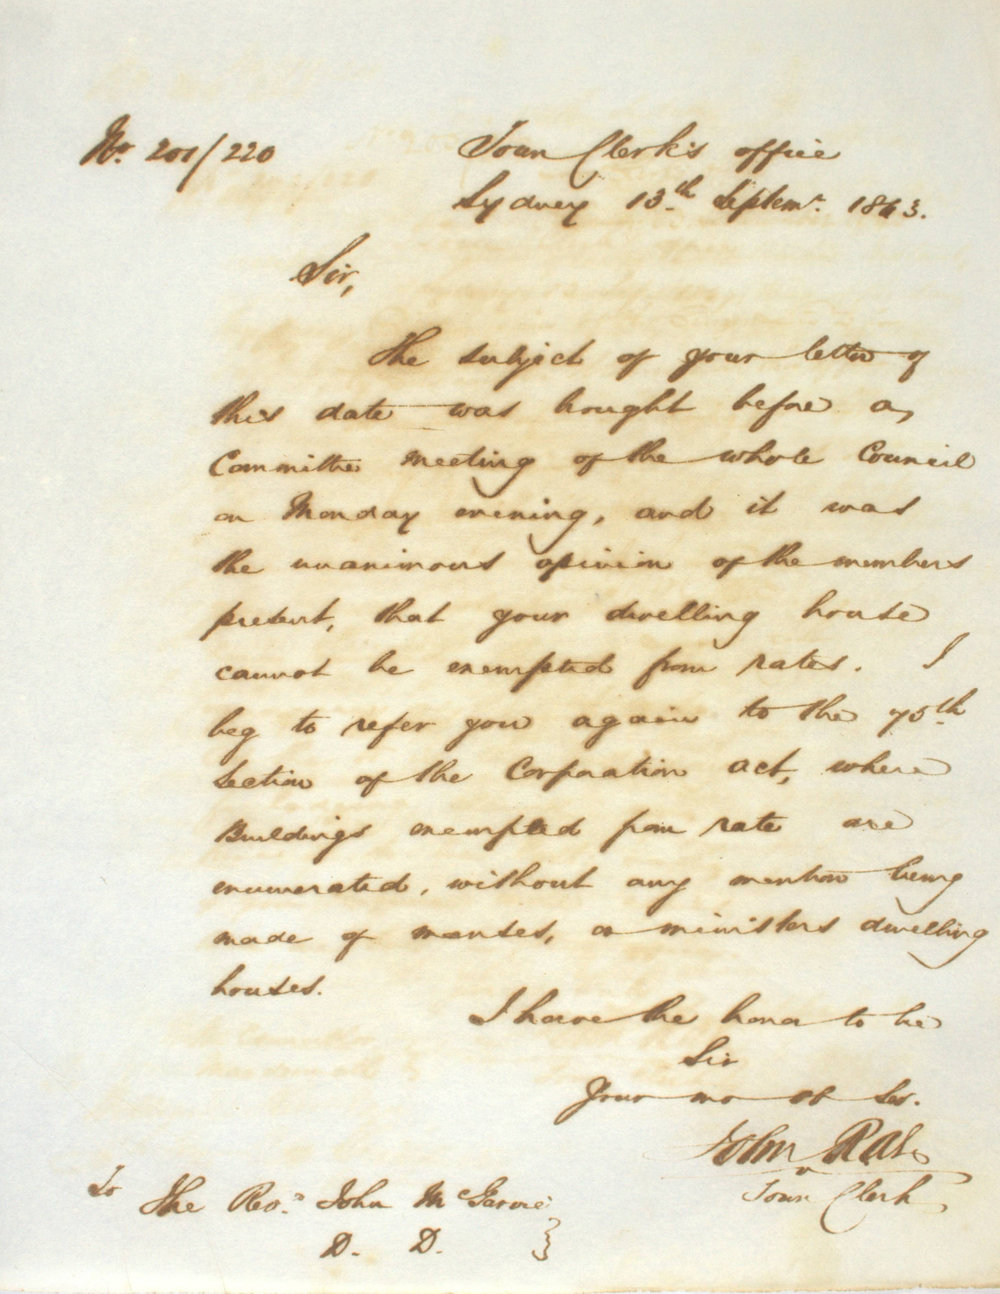 No. 201/220
Town Clerk's office
Sydney 13th Septemr. 1843.
Sir,
The subject of your letter of
this date was brought before a
Committee meeting of the whole Council
on Monday evening, and it was
the unanimous opinion of the members
present, that your dwelling house
cannot be exempted from rates. I
beg to refer you again to the 75th
Section of the Corporation act, where
Buildings exempted from rate are
enumerated, without any mention being
made of manses, or ministers dwelling
houses.
I have the honor to be
Sir
Your mo ob Ser.
John Rae
Town Clerk
To
The Revd. John McGarvie
D. D.